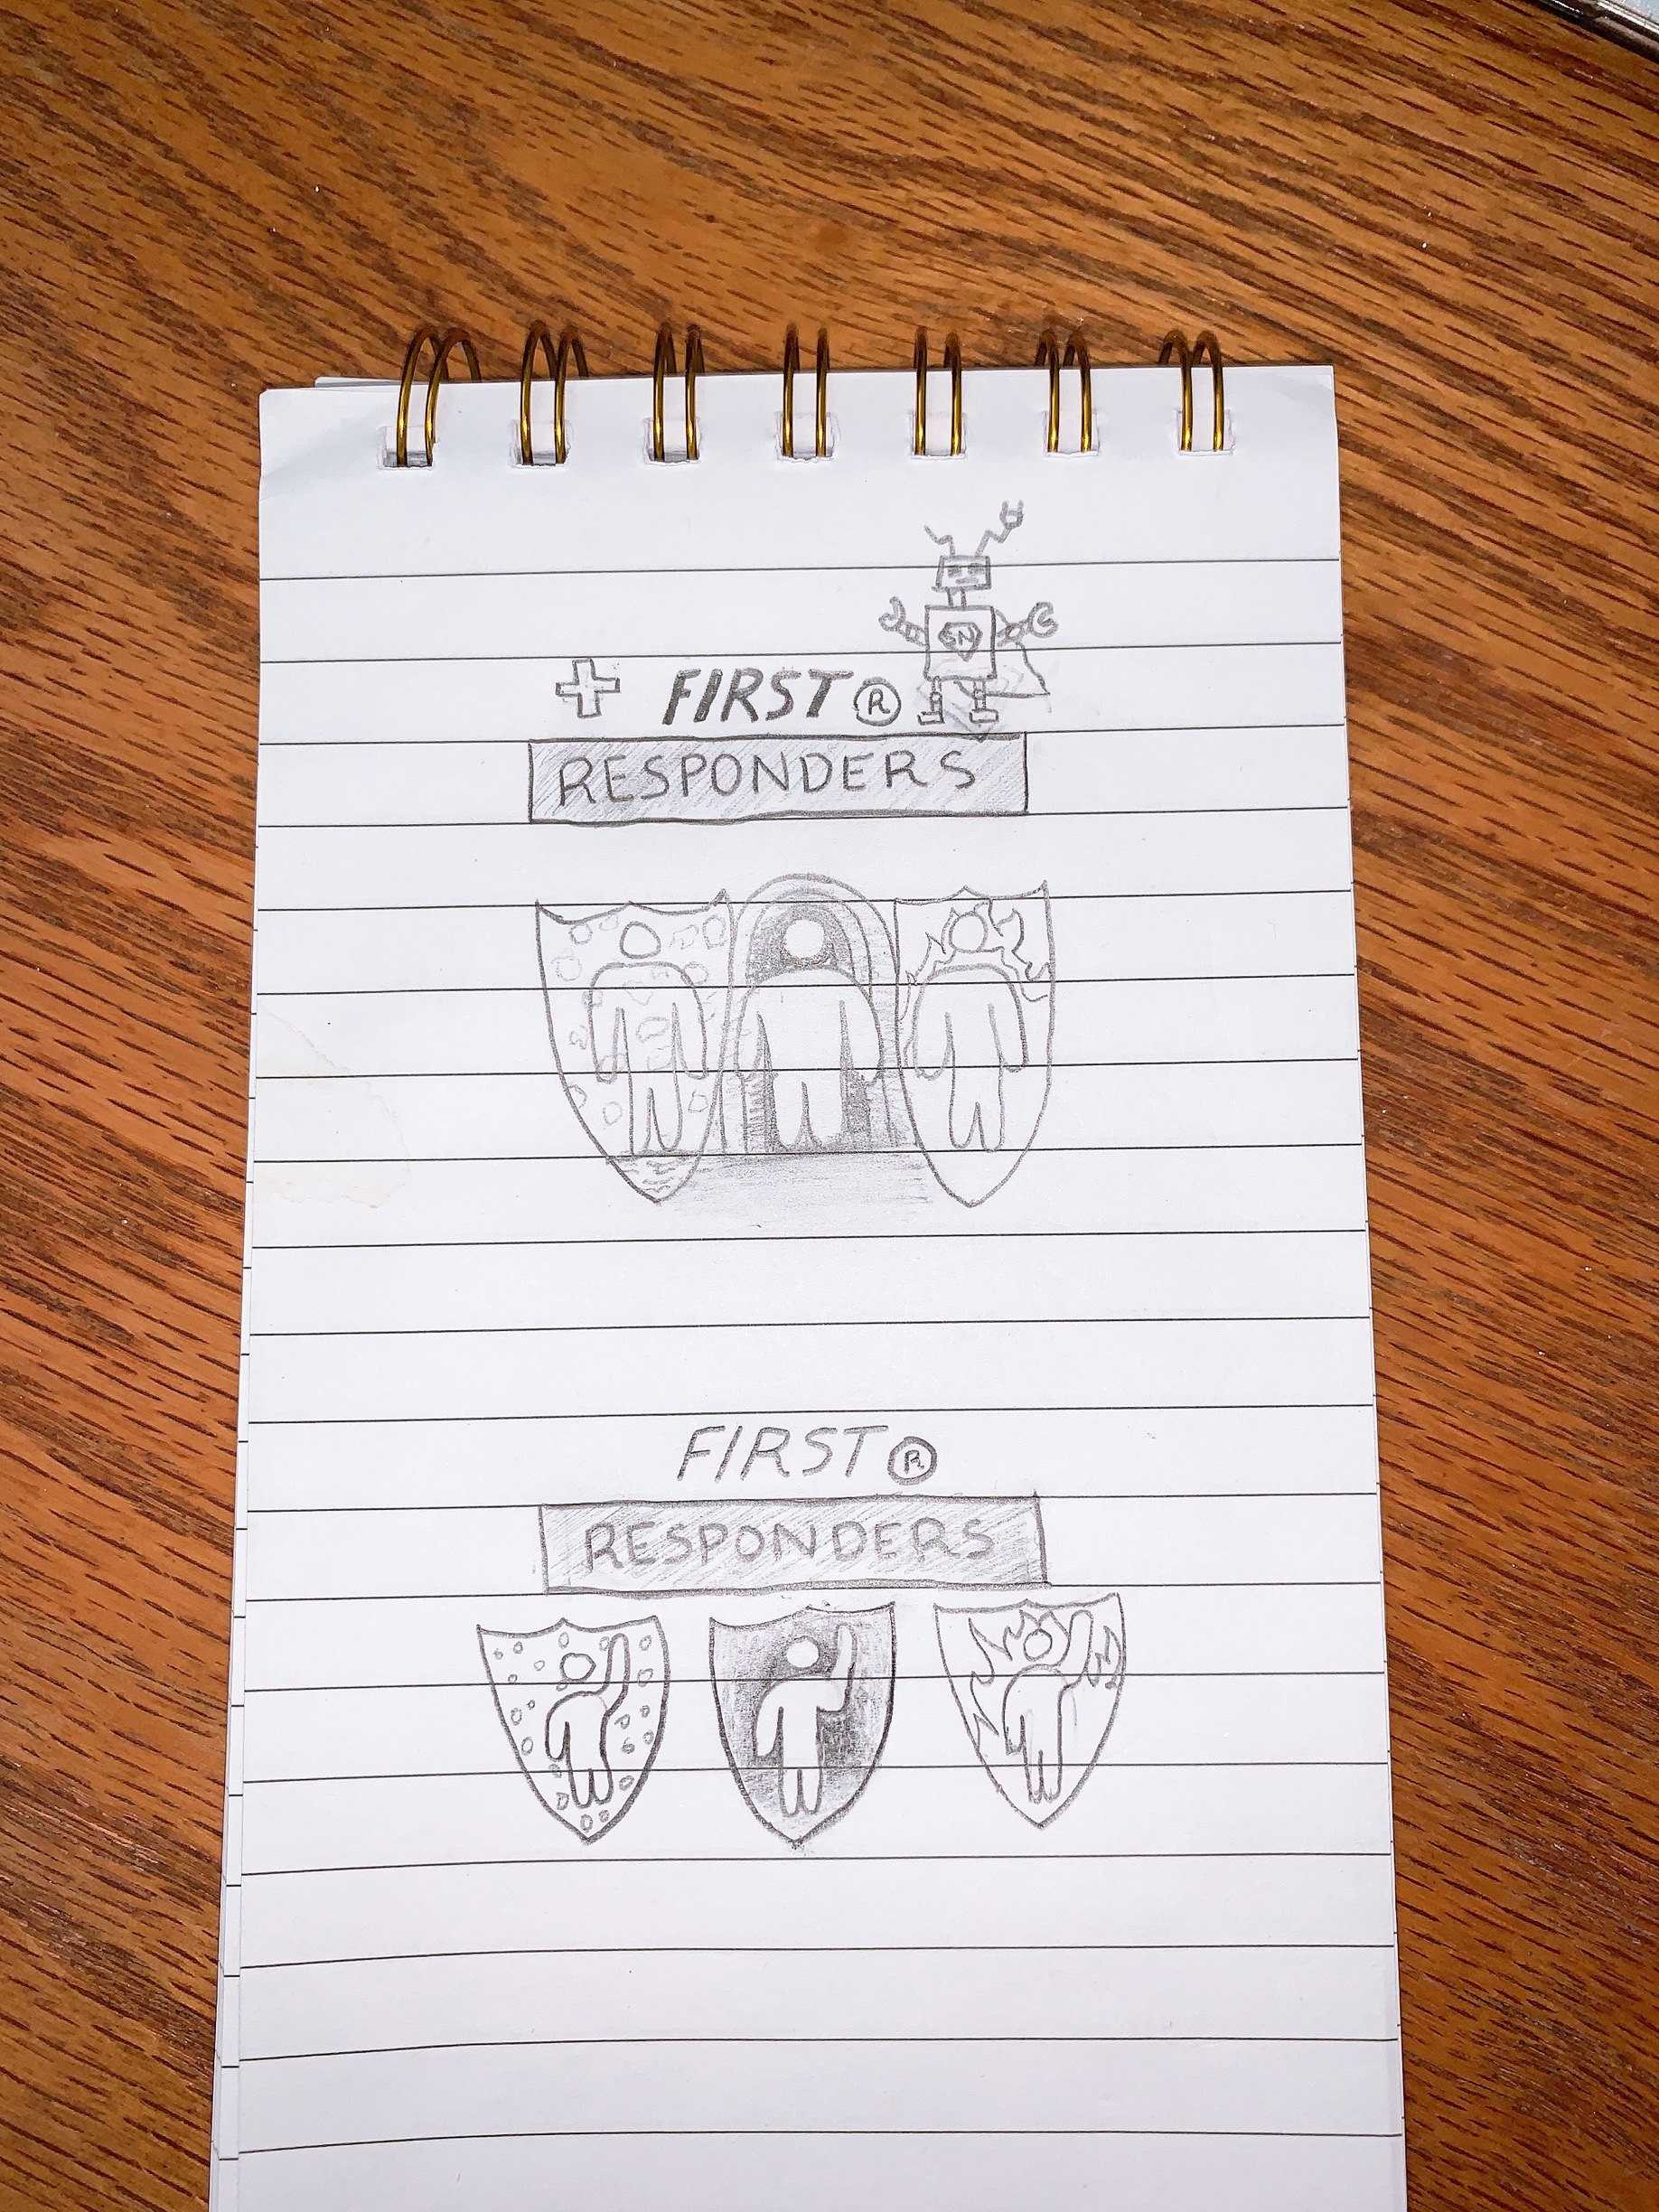 SN
FIRST®
RESPONDERS
FIRST®
RESPONDERS